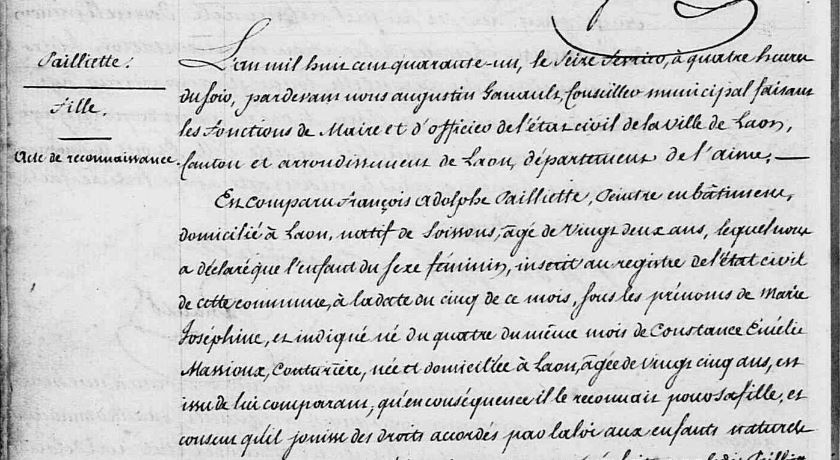 Pailliette.
Fille.
Acte de reconnaissance.
L'an mil huit cent quarante-un, le Seize février, à quatre heures
du soir, pardevant nous augustin Conseiller municipal faisant
les Fonctions de Maire et d'officier de l'état civil de la Ville de Laon,
Canton et arrondissement de Laon, département de l'aisne,
Est Comparu François Adolphe Pailliette, Peintre en bâtiments,
domicilié à Laon, natif de Soissons, âgé de Vingt deux ans, lequel nous
a déclaré que l'enfant du sexe féminin, inscrit au registre de l'état civil
de cette commune, à la date du cinq de ce mois, sous les prénoms de Marie
Joséphine, et indiqué né du quatre du même mois de Constance Emélie
Massioux, Couturière, née et domiciliée à Laon, âgée de Vingt cinq ans, est
issu de lui comparant, qu'en conséquence il le reconnait pour sa fille, et
consent qu'il jouisse des droits accordés par la loi aux enfants naturels